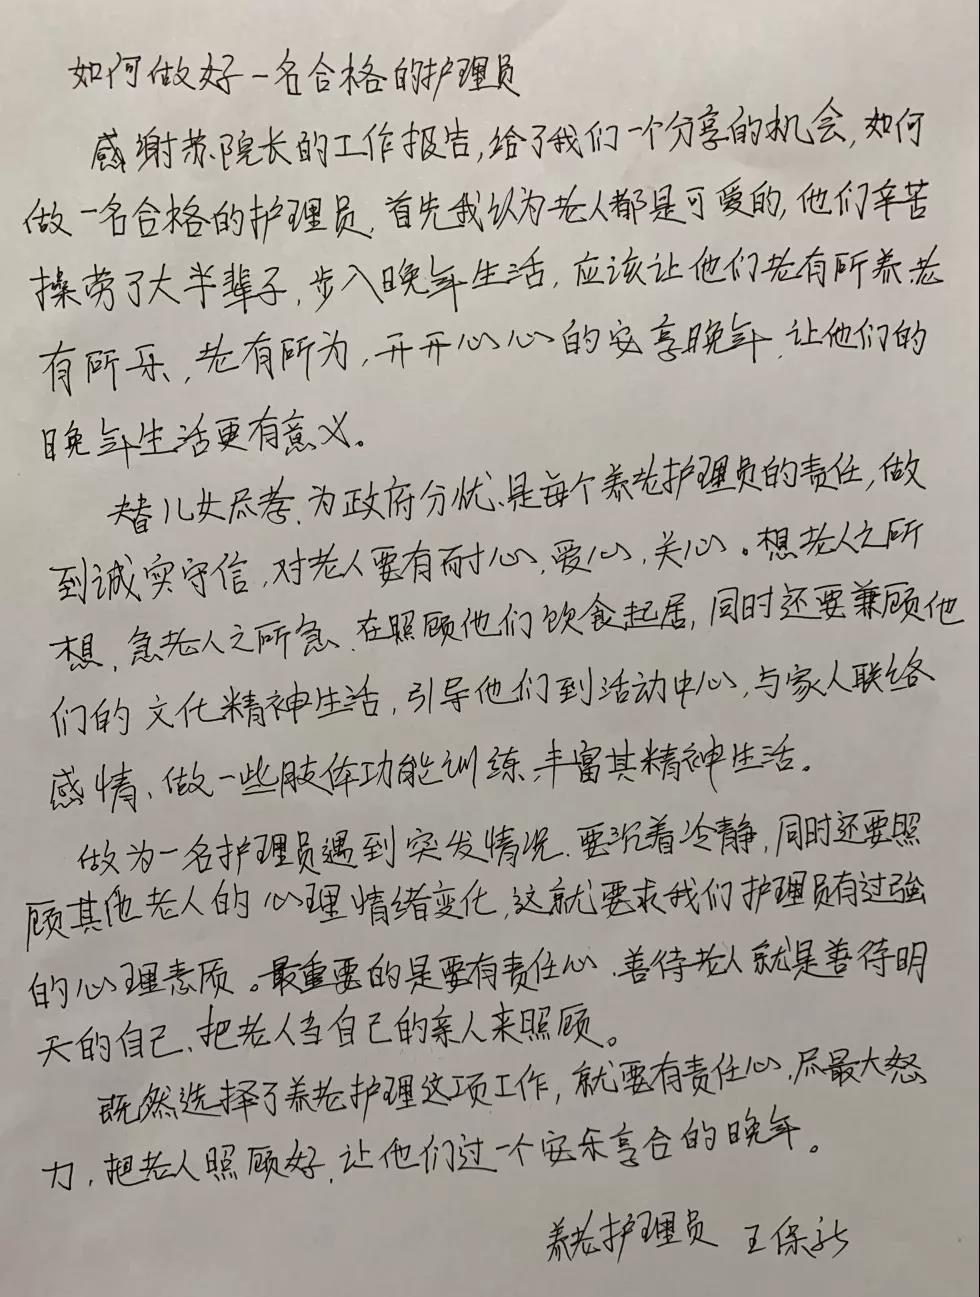 如何做好一名合格的护理员
感谢苏院长的工作报告,给了我们一个分享的机会,如何
做一名合格的护理员,首先我认为老人都是可爱的,他们辛苦
操劳了大半辈子,步入晚年生活,应该让他们老有所养、老
有所乐,老有所为,开开心心的安享晚年,让他们的
晚年生活更有意义。
替儿女尽孝、为政府分忧、是每个养老护理员的责任,做
到诚实守信,对老人要有耐心、爱心、关心。想老人之所
想,急老人之所急、在照顾他们饮食起居,同时还要兼顾他
们的文化精神生活,引导他们到活动中心,与家人联络
感情、做一些肢体功能训练、丰富其精神生活。
做为一名护理员遇到突发情况、要沉着冷静,同时还要照
顾其他老人的心理情绪变化,这就要求我们护理员有过强
的心理素质。最重要的是要有责任心、善待老人就是善待明
天的自己、把老人当自己的亲人来照顾。
既然选择了养老护理这项工作,就要有责任心,尽最大怒
力,把老人照顾好,让他们过一个安乐享合的晚年。
养老护理员 王保新